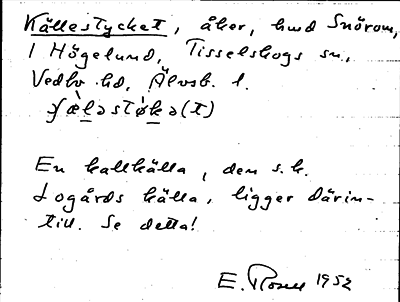 Källestycket, åker, hmd Snörom,
1 Högelund, Tisselskogs sn,
Vedbo hd, Älvsb. l.
En kallkälla, den s.k.
Logårds källa, ligger därin-
till. Se detta!
E. Rosell 1952